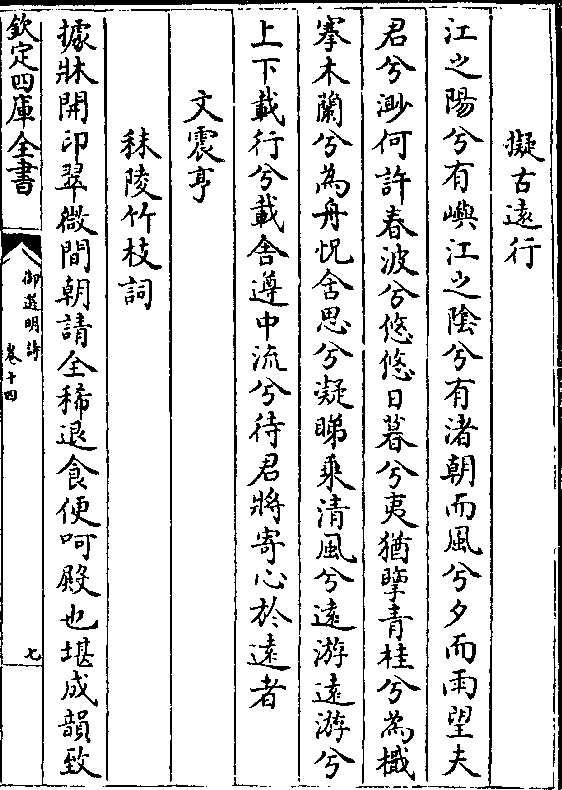 擬古遠行
江之陽兮有嶼江之陰兮有渚朝而風兮夕而雨望夫
君兮渺何許春波兮悠悠日暮兮夷猶擥青桂兮為檝
搴木蘭兮為舟怳含思兮凝睇乘清風兮遠游遠游兮
上下載行兮載舍遵中流兮待君將寄心於遠者
文震亨
秣陵竹枝詞
據牀開卬翠微間朝請全稀退食便呵殿也堪成韻致
欽定四庫全書
御選明詩
卷十四
七